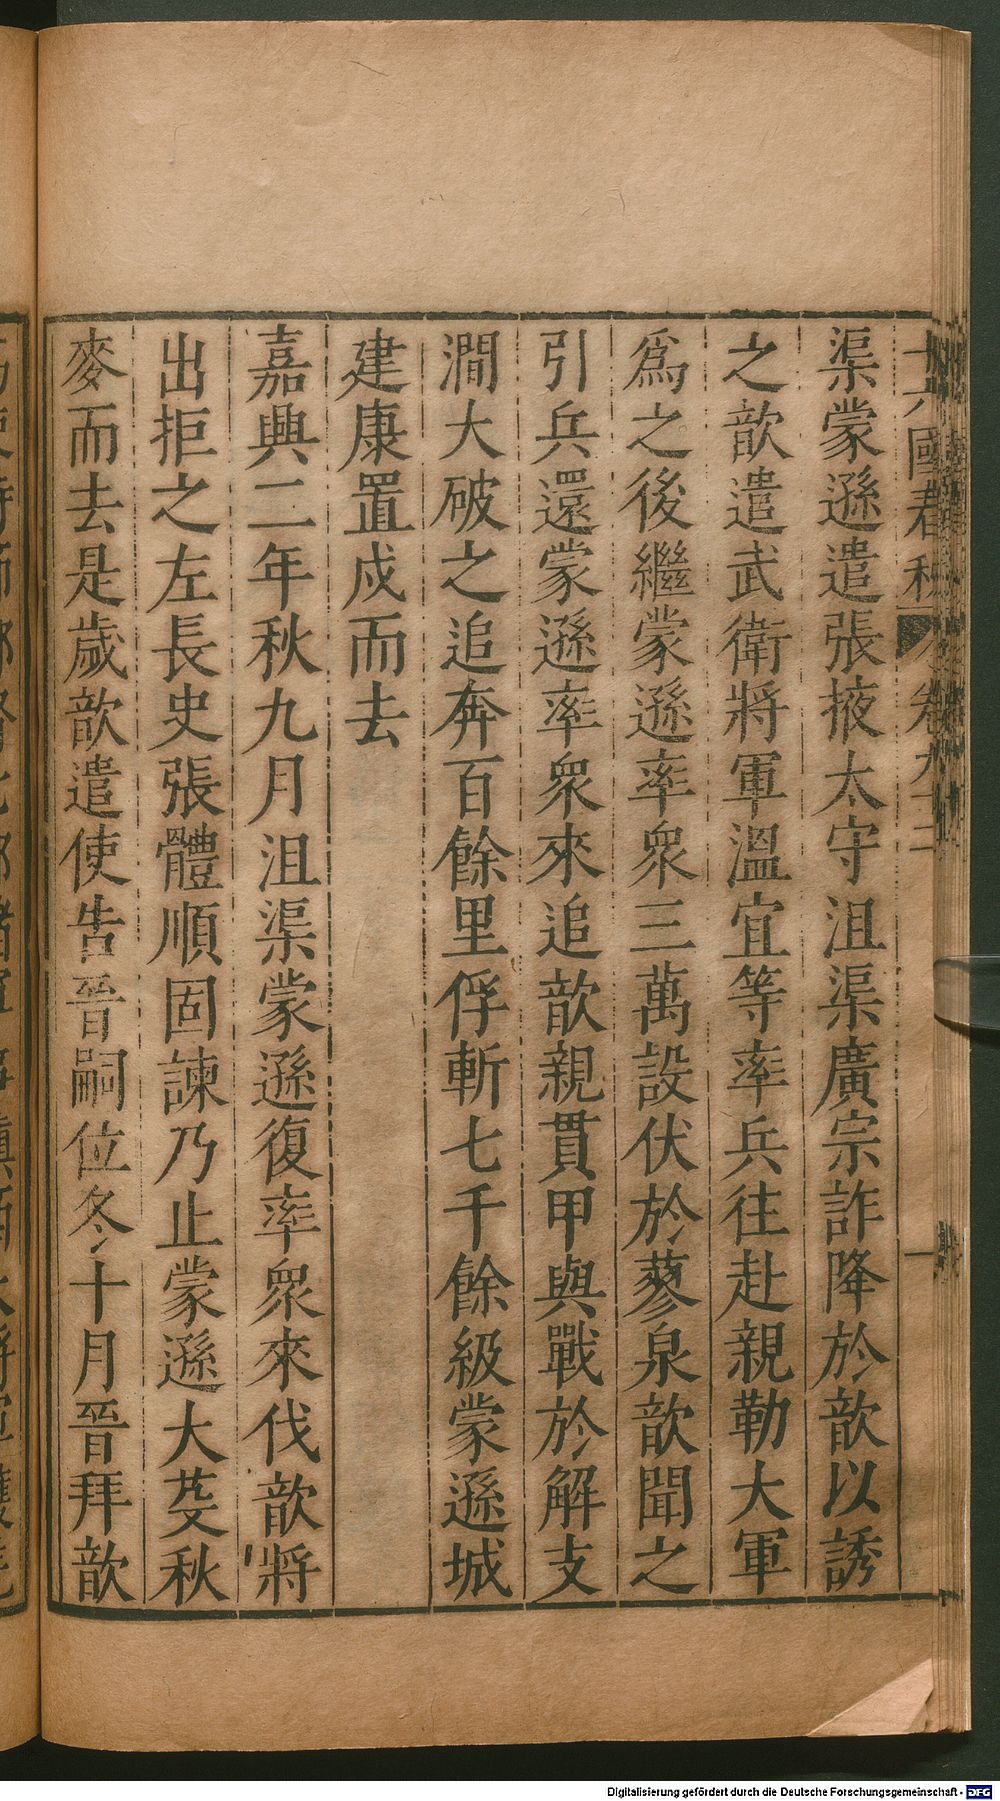 渠蒙遜遣張掖太守沮渠廣宗詐降於歆以誘
之歆遣武衛將軍溫宜等率兵往赴親勒大軍
爲之後繼蒙遜率衆三萬設伏於蓼泉歆聞之
引兵還蒙遜率衆來追歆親貫甲與戰於解支
澗大破之追奔百餘里俘斬七千餘級蒙遜城
建康置戍而去
嘉興二年秋九月沮渠蒙遜復率衆來伐歆將
出拒之左長史張體順固諫乃止蒙遜大芟秋
麥而去是歲歆遣使告晉嗣位冬十月晉拜歆
Digitalisierung gefördert durch die Deutsche Forschungsgemeinschaft - DFG